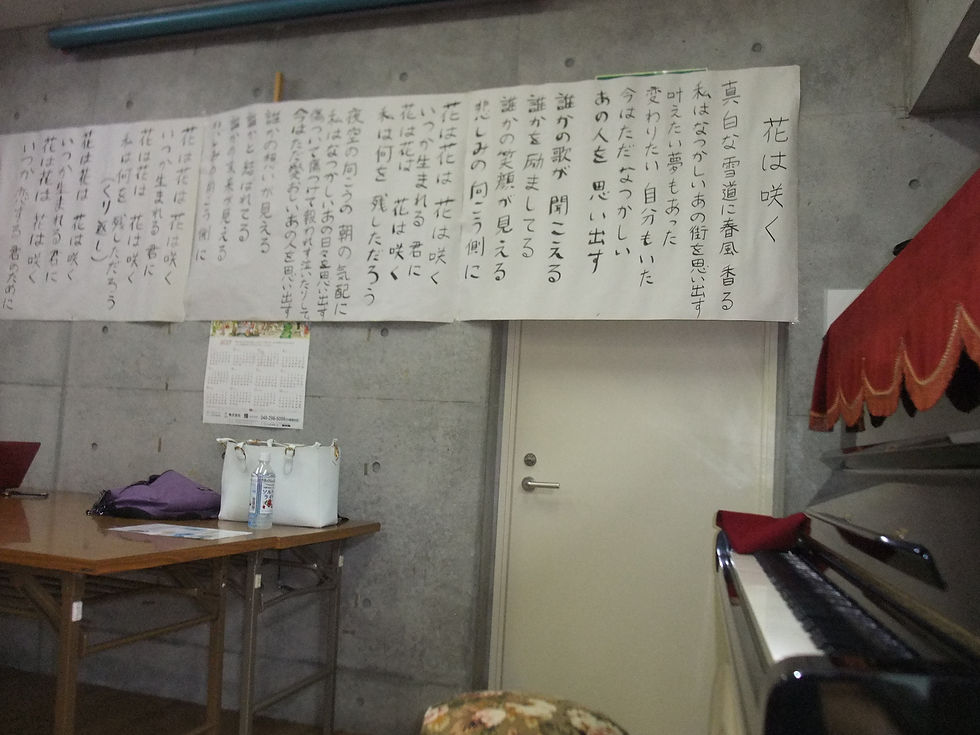 花は咲く
真白な 雪道に 春風 香る
私はなつかしいあの街を思い出す
叶えたい夢もあった
変わりたい 自分もいた
今はただ なつかしい
あの人を 思い出す
誰かの歌が 聞こえる
誰かを 励ましてる
誰かの笑顔が 見える
悲しみの 向こう側に
花は花は 花は咲く
いつか生まれる 君に
花は花は 花は咲く
私は何を 残しただろう
夜空の 向こうの 朝の気配に
私はなつかしいあの日々を思い出す
傷ついて傷つけて報われず泣いたりして
今はただ愛おしいあの人を思い出す
誰かの想いが見える
誰かと 結ばれてる
誰かの未来が見える
悲しみの向こう側に
花は花は 花は咲く
いつか生まれる 君に
花は花は 花は咲く
私は何を 残しただろう
(くり返し)
花は花は 花は咲く
いつか生まれる君に
花は花は 花は咲く
いつか 恋する 君のために
2017
株式会社